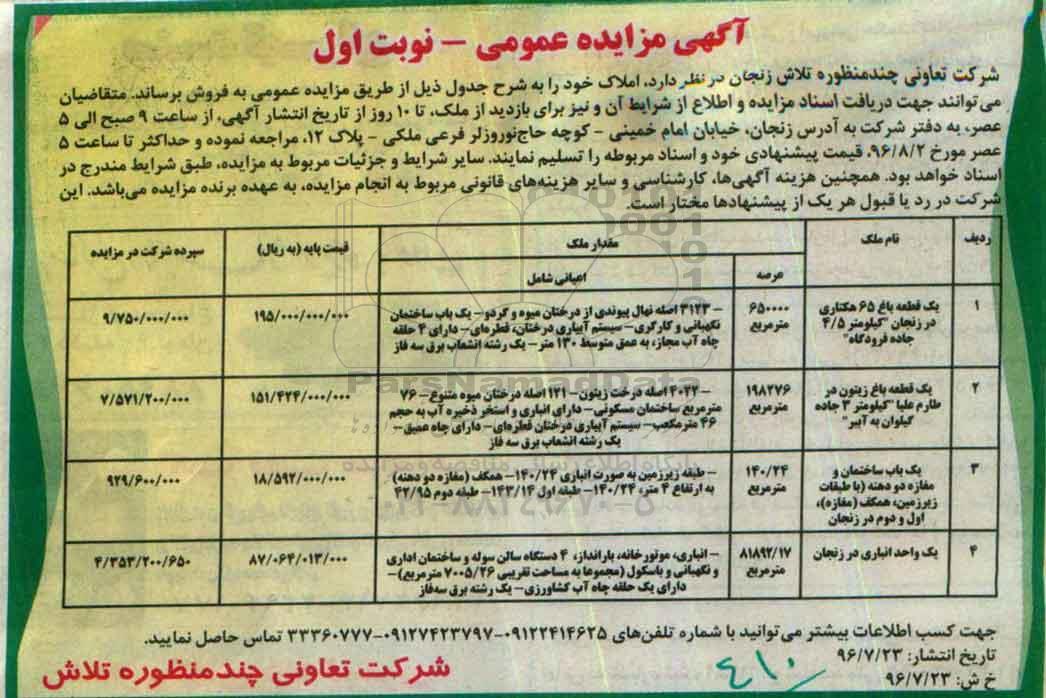 آگهی مزایده عمومی - نوبت اول
شرکت تعاونی چندمنظوره تلاش زنجان در نظر دارد، املاک خود را به شرح جدول ذیل از طریق مزایده عمومی به فروش برساند. متقاضیان
می‌توانند جهت دریافت اسناد مزایده و اطلاع از شرایط آن و نیز برای بازدید از ملک، تا ۱۰ روز از تاریخ انتشار آگهی، از ساعت ۹ صبح الی ۵
عصر، به دفتر شرکت به آدرس زنجان، خیابان امام خمینی - کوچه حاج‌نوروزلر فرعی ملکی - پلاک ۱۲، مراجعه نموده و حداکثر تا ساعت ۵
عصر مورخ ۹۶/۸/۲، قیمت پیشنهادی خود و اسناد مربوطه را تسلیم نمایند. سایر شرایط و جزئیات مربوط به مزایده، طبق شرایط مندرج در
اسناد خواهد بود. همچنین هزینه آگهی‌ها، کارشناسی و سایر هزینه‌های قانونی مربوط به انجام مزایده، به عهده برنده مزایده می‌باشد. این
شرکت در رد یا قبول هر یک از پیشنهادها مختار است.
ردیف نام ملک مقدار ملک قیمت پایه (به ریال) سپرده شرکت در مزایده
عرصه اعیانی شامل
۱ یک قطعه باغ ۶۵ هکتاری ۶۵۰۰۰۰ - ۳۱۲۳ اصله نهال پیوندی از درختان میوه و گردو - یک باب ساختمان ۱۹۵/۰۰۰/۰۰۰/۰۰۰ ۹/۷۵۰/۰۰۰/۰۰۰
در زنجان "کیلومتر ۴/۵ مترمربع نگهبانی و کارگری - سیستم آبیاری درختان، قطره‌ای - دارای ۴ حلقه
جاده فرودگاه" چاه آب مجاز، به عمق متوسط ۱۳۰ متر - یک رشته انشعاب برق سه فاز
۲ یک قطعه باغ زیتون در ۱۹۸۲۷۶ - ۴۰۲۲ اصله درخت زیتون - ۱۲۱ اصله درختان میوه متنوع - ۷۶ ۱۵۱/۴۲۴/۰۰۰/۰۰۰ ۷/۵۷۱/۲۰۰/۰۰۰
طارم علیا "کیلومتر ۳ جاده مترمربع مترمربع ساختمان مسکونی - دارای انباری و استخر ذخیره آب به حجم
گیلوان به آببر" ۴۶ مترمکعب - سیستم آبیاری درختان قطره‌ای - دارای چاه عمیق -
یک رشته انشعاب برق سه فاز
۳ یک باب ساختمان و ۱۴۰/۲۴ - طبقه زیرزمین به صورت انباری ۱۴۰/۲۴ - همکف (مغازه دو دهنه) ۱۸/۵۹۲/۰۰۰/۰۰۰ ۹۲۹/۶۰۰/۰۰۰
مغازه دو دهنه (با طبقات مترمربع به ارتفاع ۴ متر، ۱۴۰/۲۴ - طبقه اول ۱۴۳/۱۴ - طبقه دوم ۴۲/۹۵
زیرزمین، همکف (مغازه)،
اول و دوم در زنجان
۴ یک واحد انباری در زنجان ۸۱۸۹۲/۱۷ - انباری، موتورخانه، بارانداز، ۴ دستگاه سالن سوله و ساختمان اداری ۸۷/۰۶۴/۰۱۳/۰۰۰ ۴/۳۵۳/۲۰۰/۶۵۰
مترمربع و نگهبانی و باسکول (مجموعا به مساحت تقریبی ۷۰۰۵/۲۶ مترمربع) -
دارای یک حلقه چاه آب کشاورزی - یک رشته برق سه‌فاز
جهت کسب اطلاعات بیشتر می‌توانید با شماره تلفن‌های ۰۹۱۲۲۴۱۴۶۲۵-۰۹۱۲۷۴۲۳۷۹۷-۳۳۳۶۰۷۷۷ تماس حاصل نمایید.
تاریخ انتشار: ۹۶/۷/۲۳
خ ش: ۹۶/۷/۲۳
۴۱۰
شرکت تعاونی چندمنظوره تلاش
ParsNamadData
۰۲۱-۸۸۳۴۹۶۷۰-۵